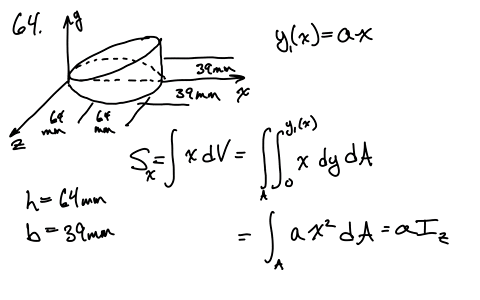 64.
y
y₁(x) = ax
39mm
x
39mm
64 mm
64 mm
z
Sₓ = ∫ x dV = ∫_A ∫_0^{y₁(x)} x dy dA
h = 64mm
b = 39mm
= ∫_A a x² dA = a I_z